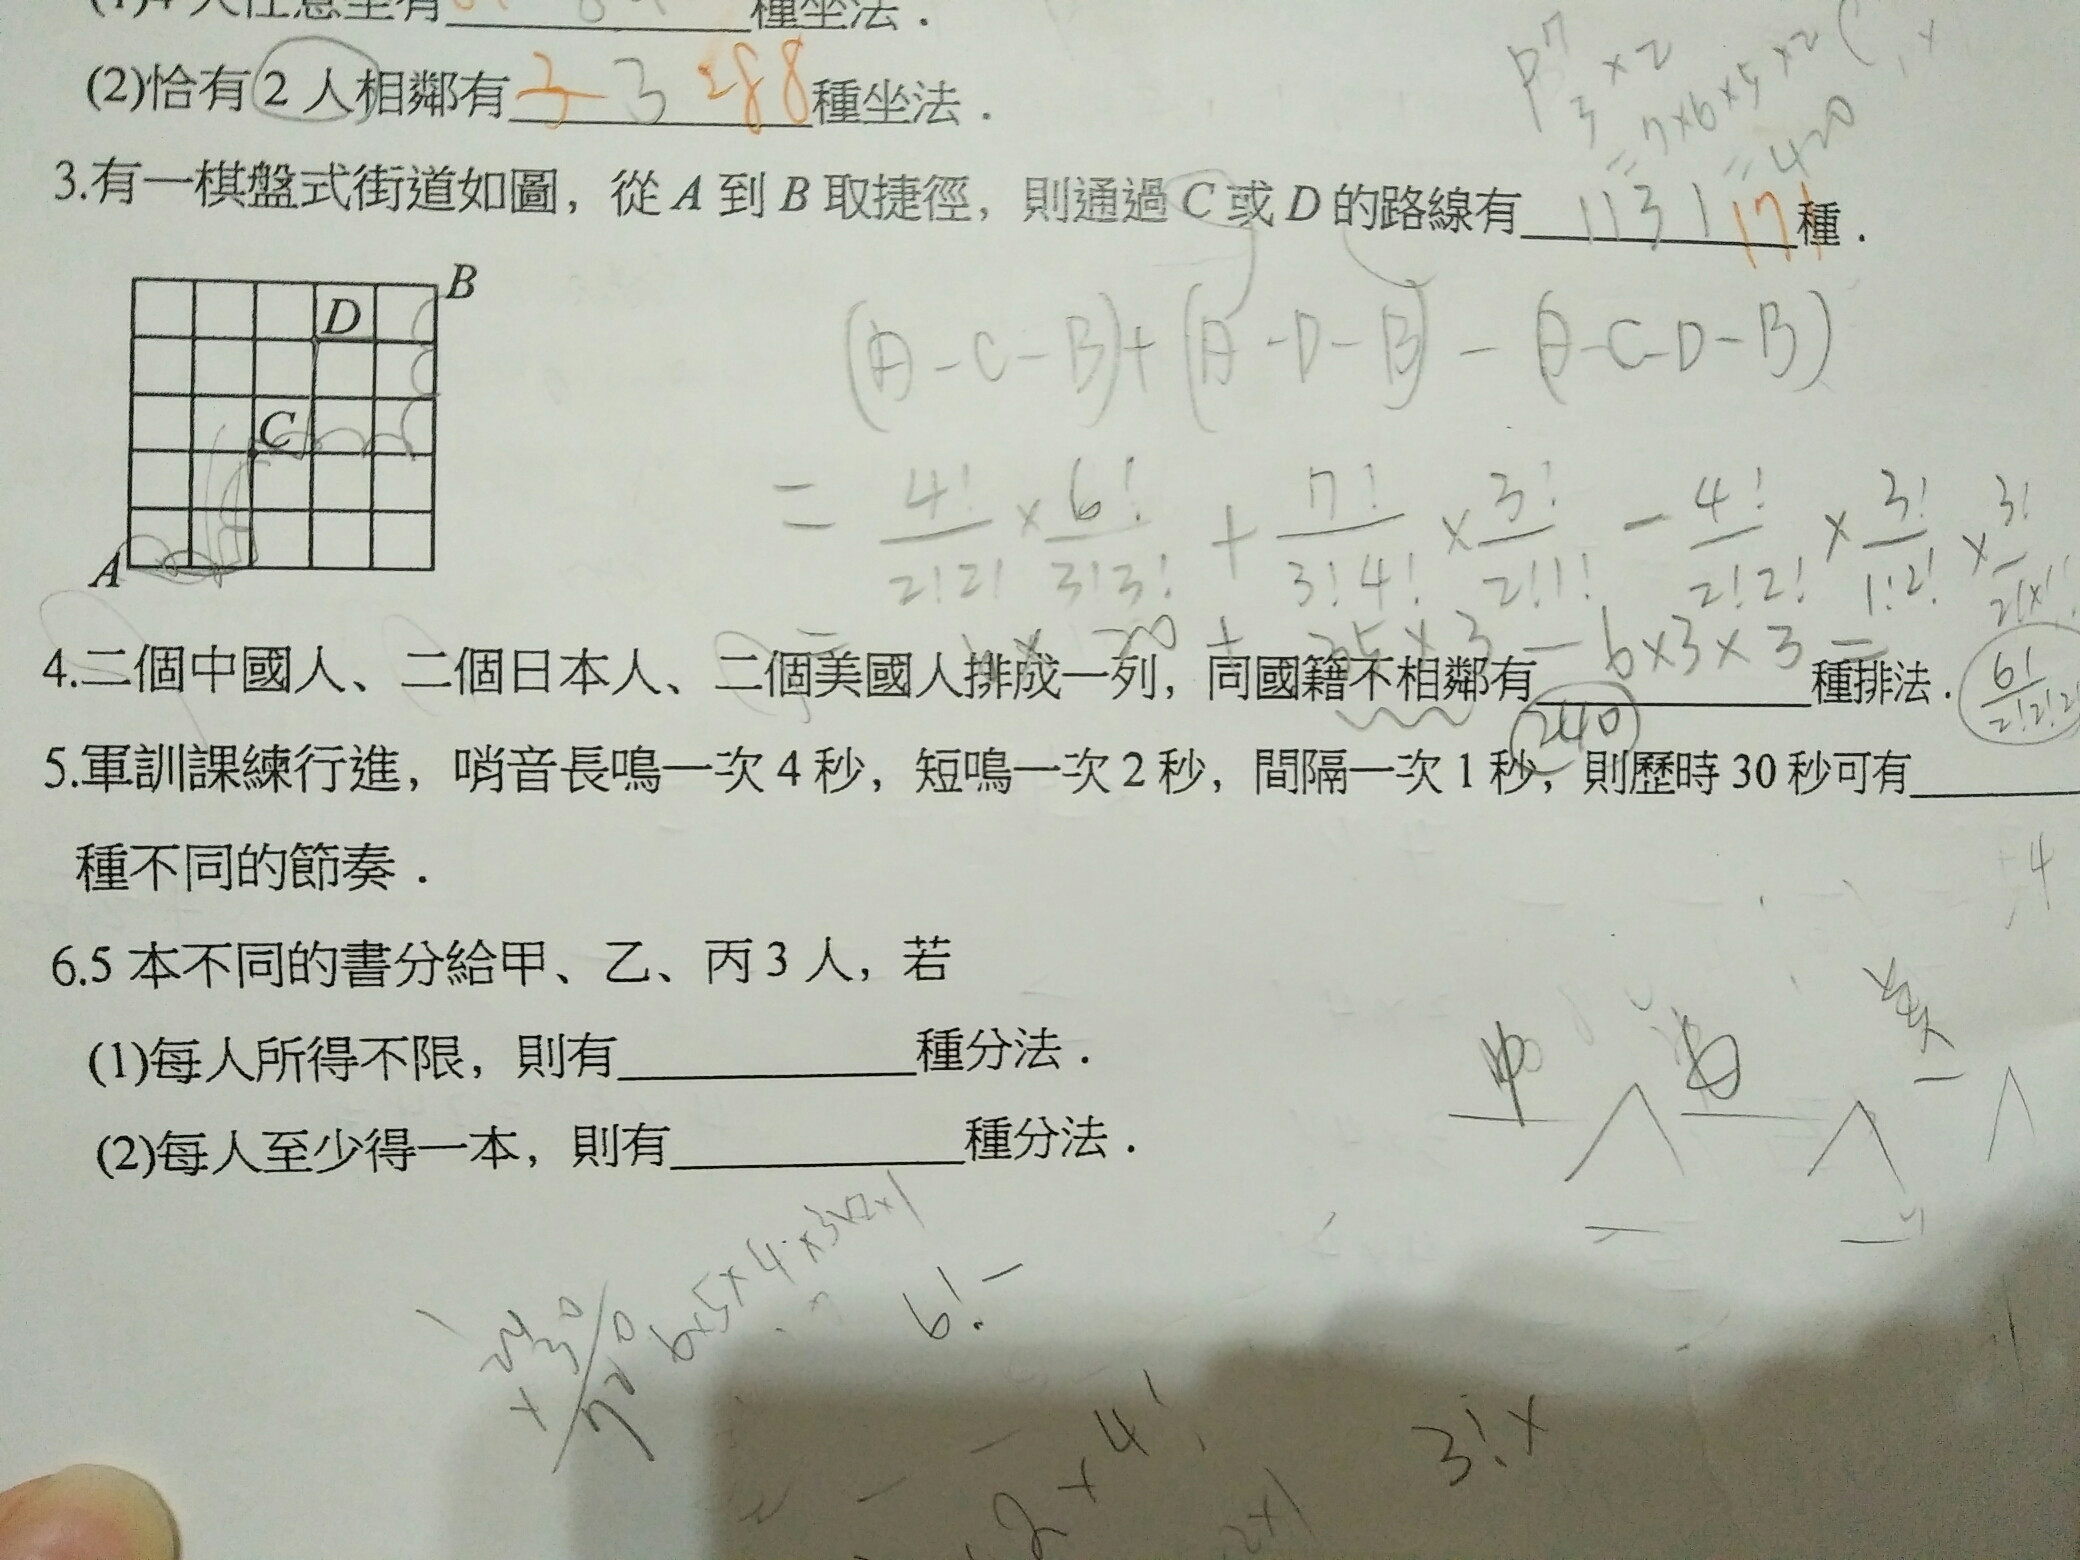 人任意坐有 種坐法.
(2)恰有2人相鄰有 3 288 種坐法.
3.有一棋盤式街道如圖，從A到B取捷徑，則通過C或D的路線有 1131 171 種.
P⁷₃ ×2
=7×6×5×2
=420
B
D
C
A
(A-C-B)+(A-D-B)-(A-C-D-B)
= 4!/2!2! × 6!/3!3! + 7!/3!4! × 3!/2!1! - 4!/2!2! × 3!/1!2! × 3!/2!×1!
× 20 + 35×3 - 6×3×3 =
4.二個中國人、二個日本人、二個美國人排成一列，同國籍不相鄰有 240 種排法.
6!/2!2!2!
5.軍訓課練行進，哨音長鳴一次4秒，短鳴一次2秒，間隔一次1秒，則歷時30秒可有
種不同的節奏.
4
6.5本不同的書分給甲、乙、丙3人，若
(1)每人所得不限，則有 種分法.
(2)每人至少得一本，則有 種分法.
中
6×5×4×3×2×1
720
6! -
2×4!
3!×
2×1